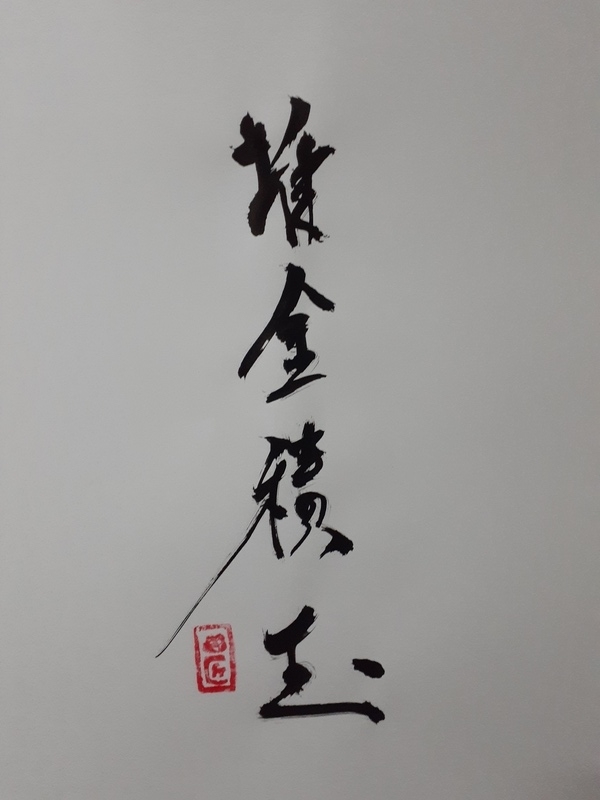 堆金積玉